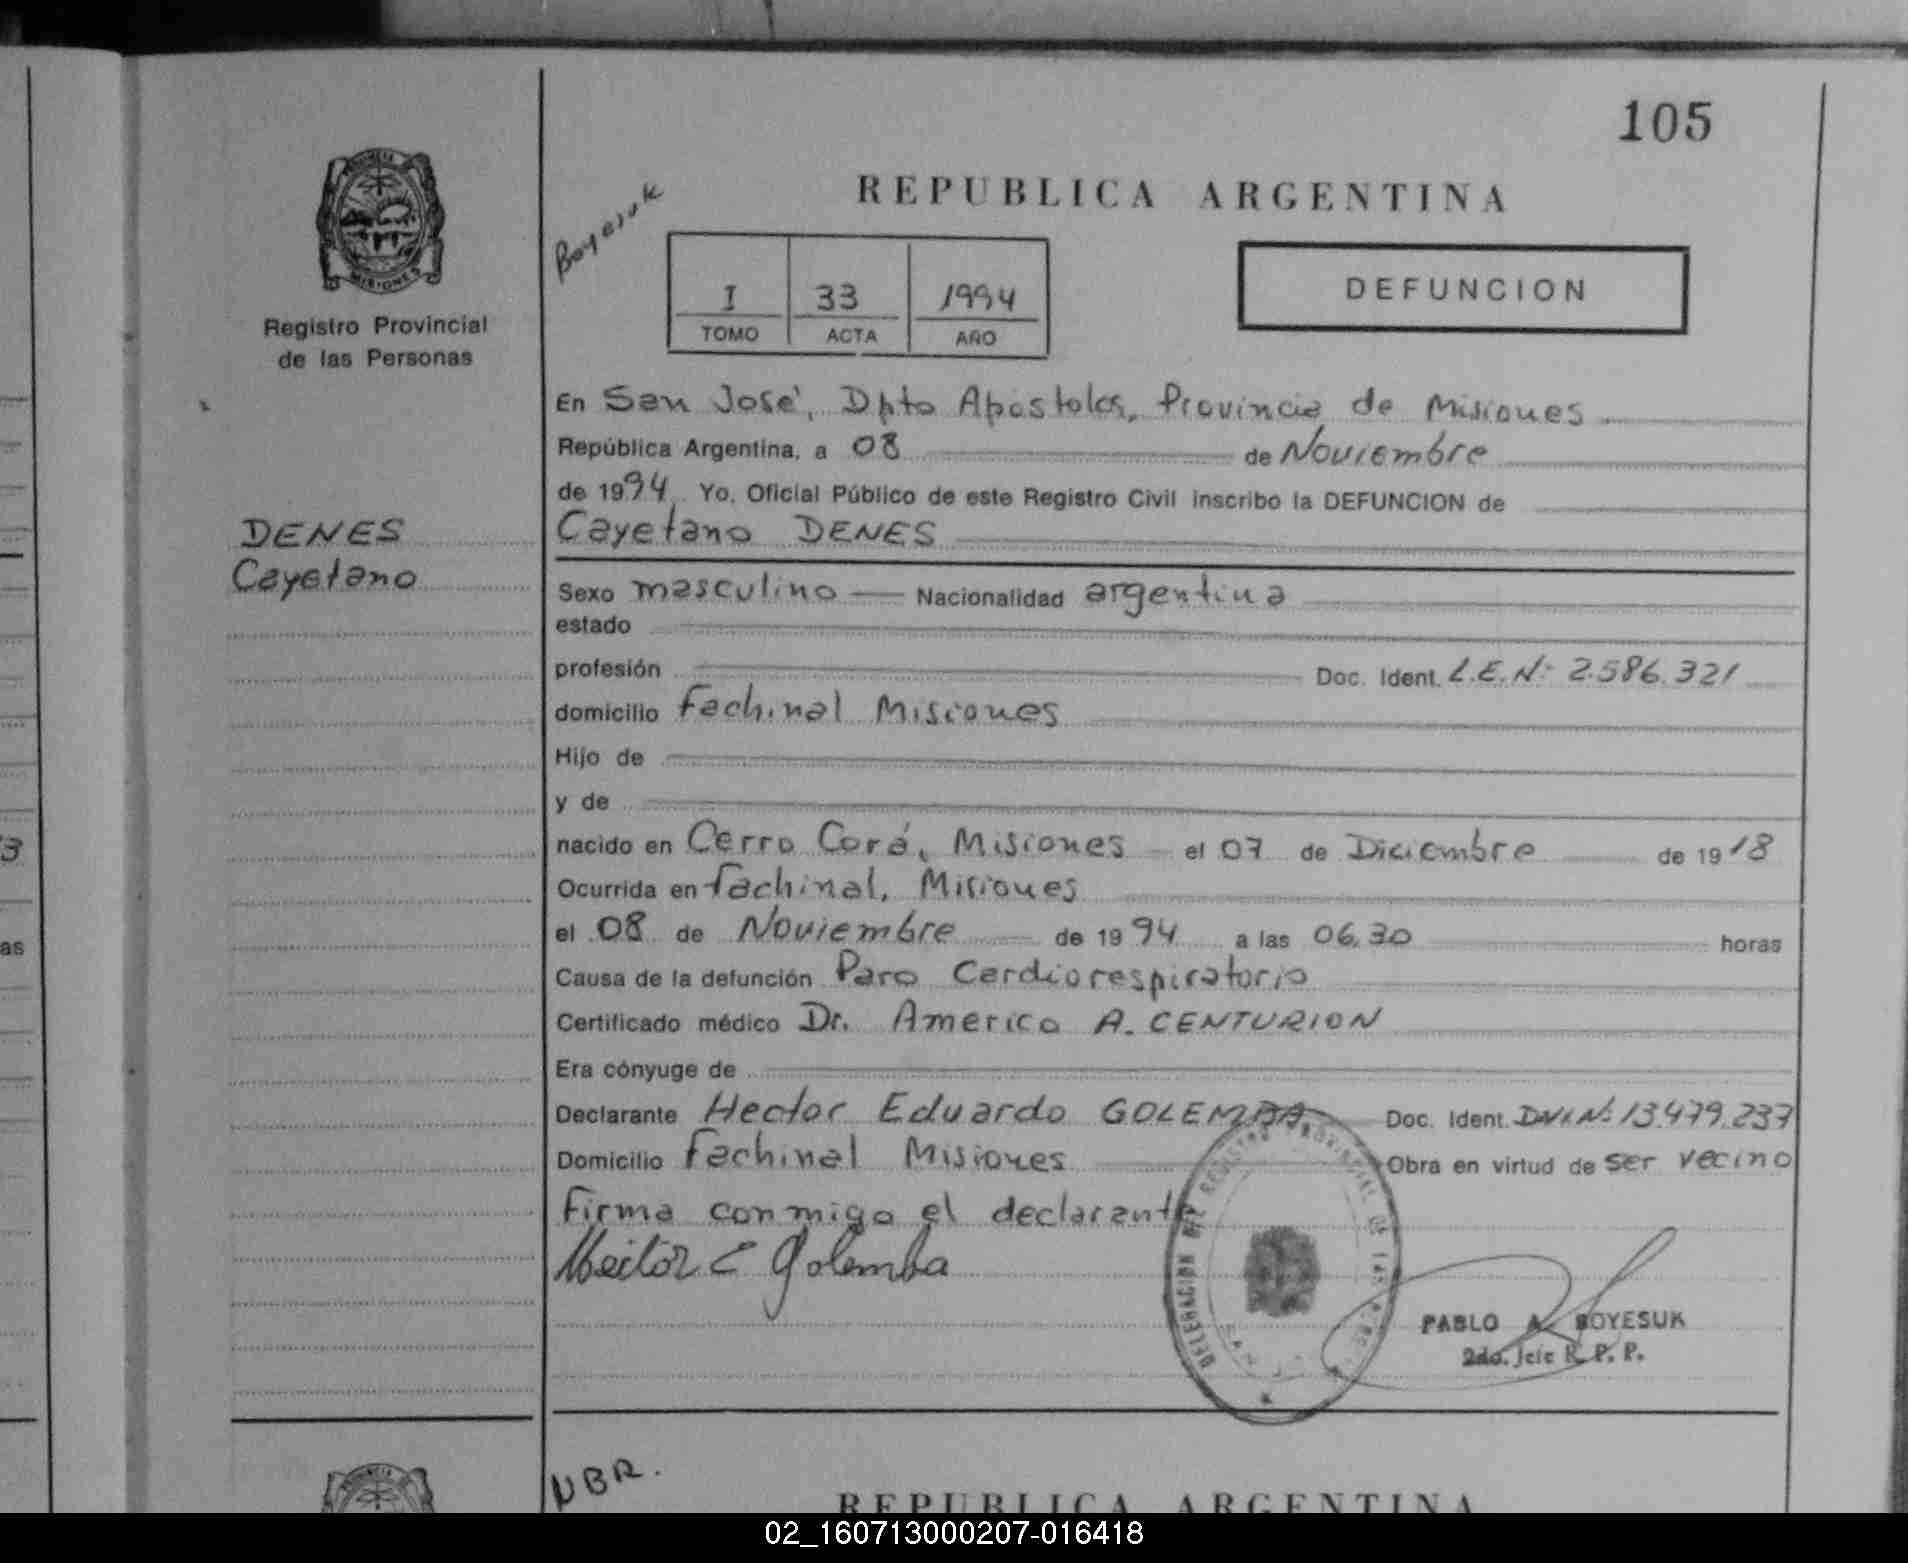 105
PROVINCIA DE
MISIONES
Registro Provincial
de las Personas
Boyesuk
REPUBLICA ARGENTINA
I 33 1994
TOMO ACTA AÑO
DEFUNCION
En San José, Dpto Apostoles, Provincia de Misiones
República Argentina, a 08 de Noviembre
de 1994 Yo, Oficial Público de este Registro Civil inscribo la DEFUNCION de
DENES
Cayetano
Cayetano DENES
Sexo masculino Nacionalidad argentina
estado
profesión Doc. Ident. L.E.Nº 2.586.321
domicilio Fachinal Misiones
Hijo de
y de
nacido en Cerro Corá, Misiones el 07 de Diciembre de 1918
Ocurrida en Fachinal, Misiones
el 08 de Noviembre de 1994 a las 06,30 horas
Causa de la defunción Paro Cardiorespiratorio
Certificado médico Dr. Americo A. CENTURION
Era cónyuge de
Declarante Hector Eduardo GOLEMBA Doc. Ident. DNI.Nº 13.479.237
Domicilio Fachinal Misiones Obra en virtud de ser vecino
Firma conmigo el declarante
Hector E Golemba
DELEGACION DEL REGISTRO PROVINCIAL DE LAS
PABLO A. BOYESUK
2do. Jefe R. P. P.
3
as
NBR.
REPUBLICA ARGENTINA
02_160713000207-016418